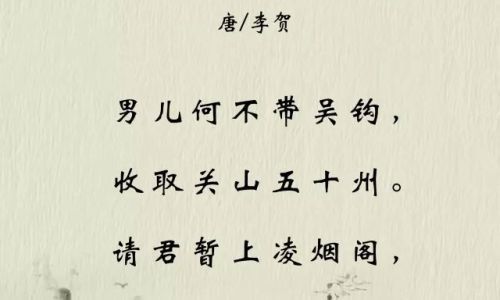 唐/李贺
男儿何不带吴钩，
收取关山五十州。
请君暂上凌烟阁，